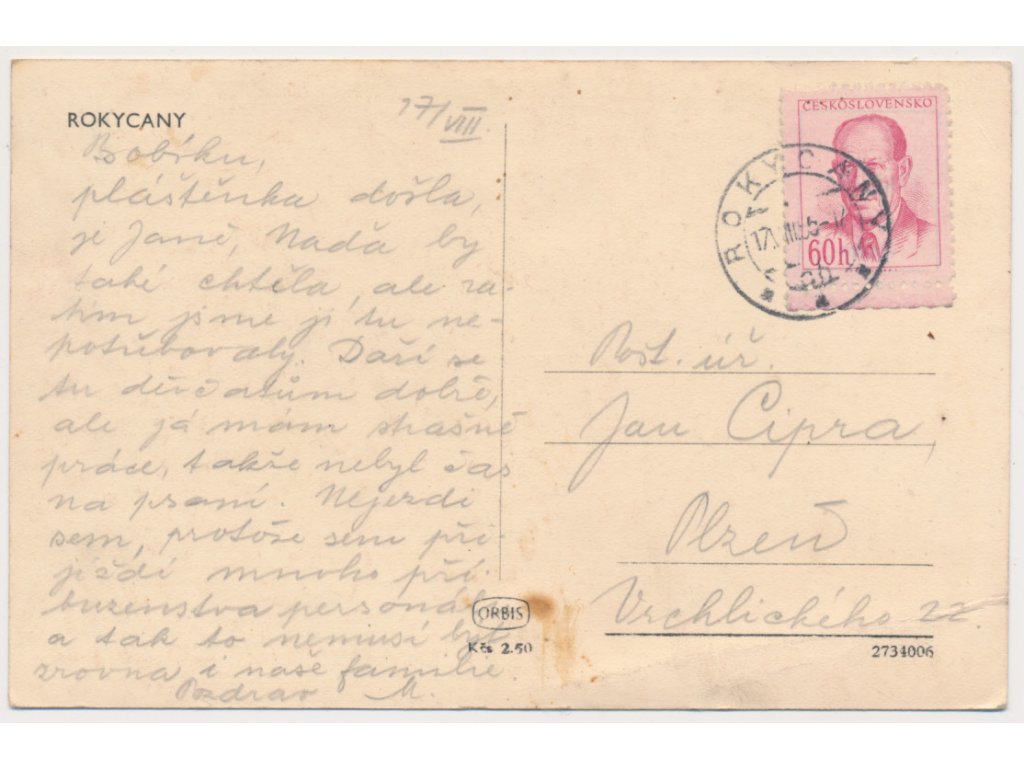 ROKYCANY
17/VIII.
Bobíku,
pláštěnka došla,
je Janě, Naďa by
také chtěla, ale za-
tím jsme ji tu ne-
potřebovaly. Daří se
tu děvčatům dobře,
ale já mám strašně
práce, takže nebyl čas
na psaní. Nejezdi
sem, protože sem při-
jíždí mnoho pří-
buzenstva personál
a tak to nemusí být
zrovna i naše familie.
Pozdrav M.
ČESKOSLOVENSKO
60h
ROKYCANY
Pošt. úř.
Jan Cipra,
Plzeň
Vrchlického 22.
ORBIS
Kčs 2.50
2734006